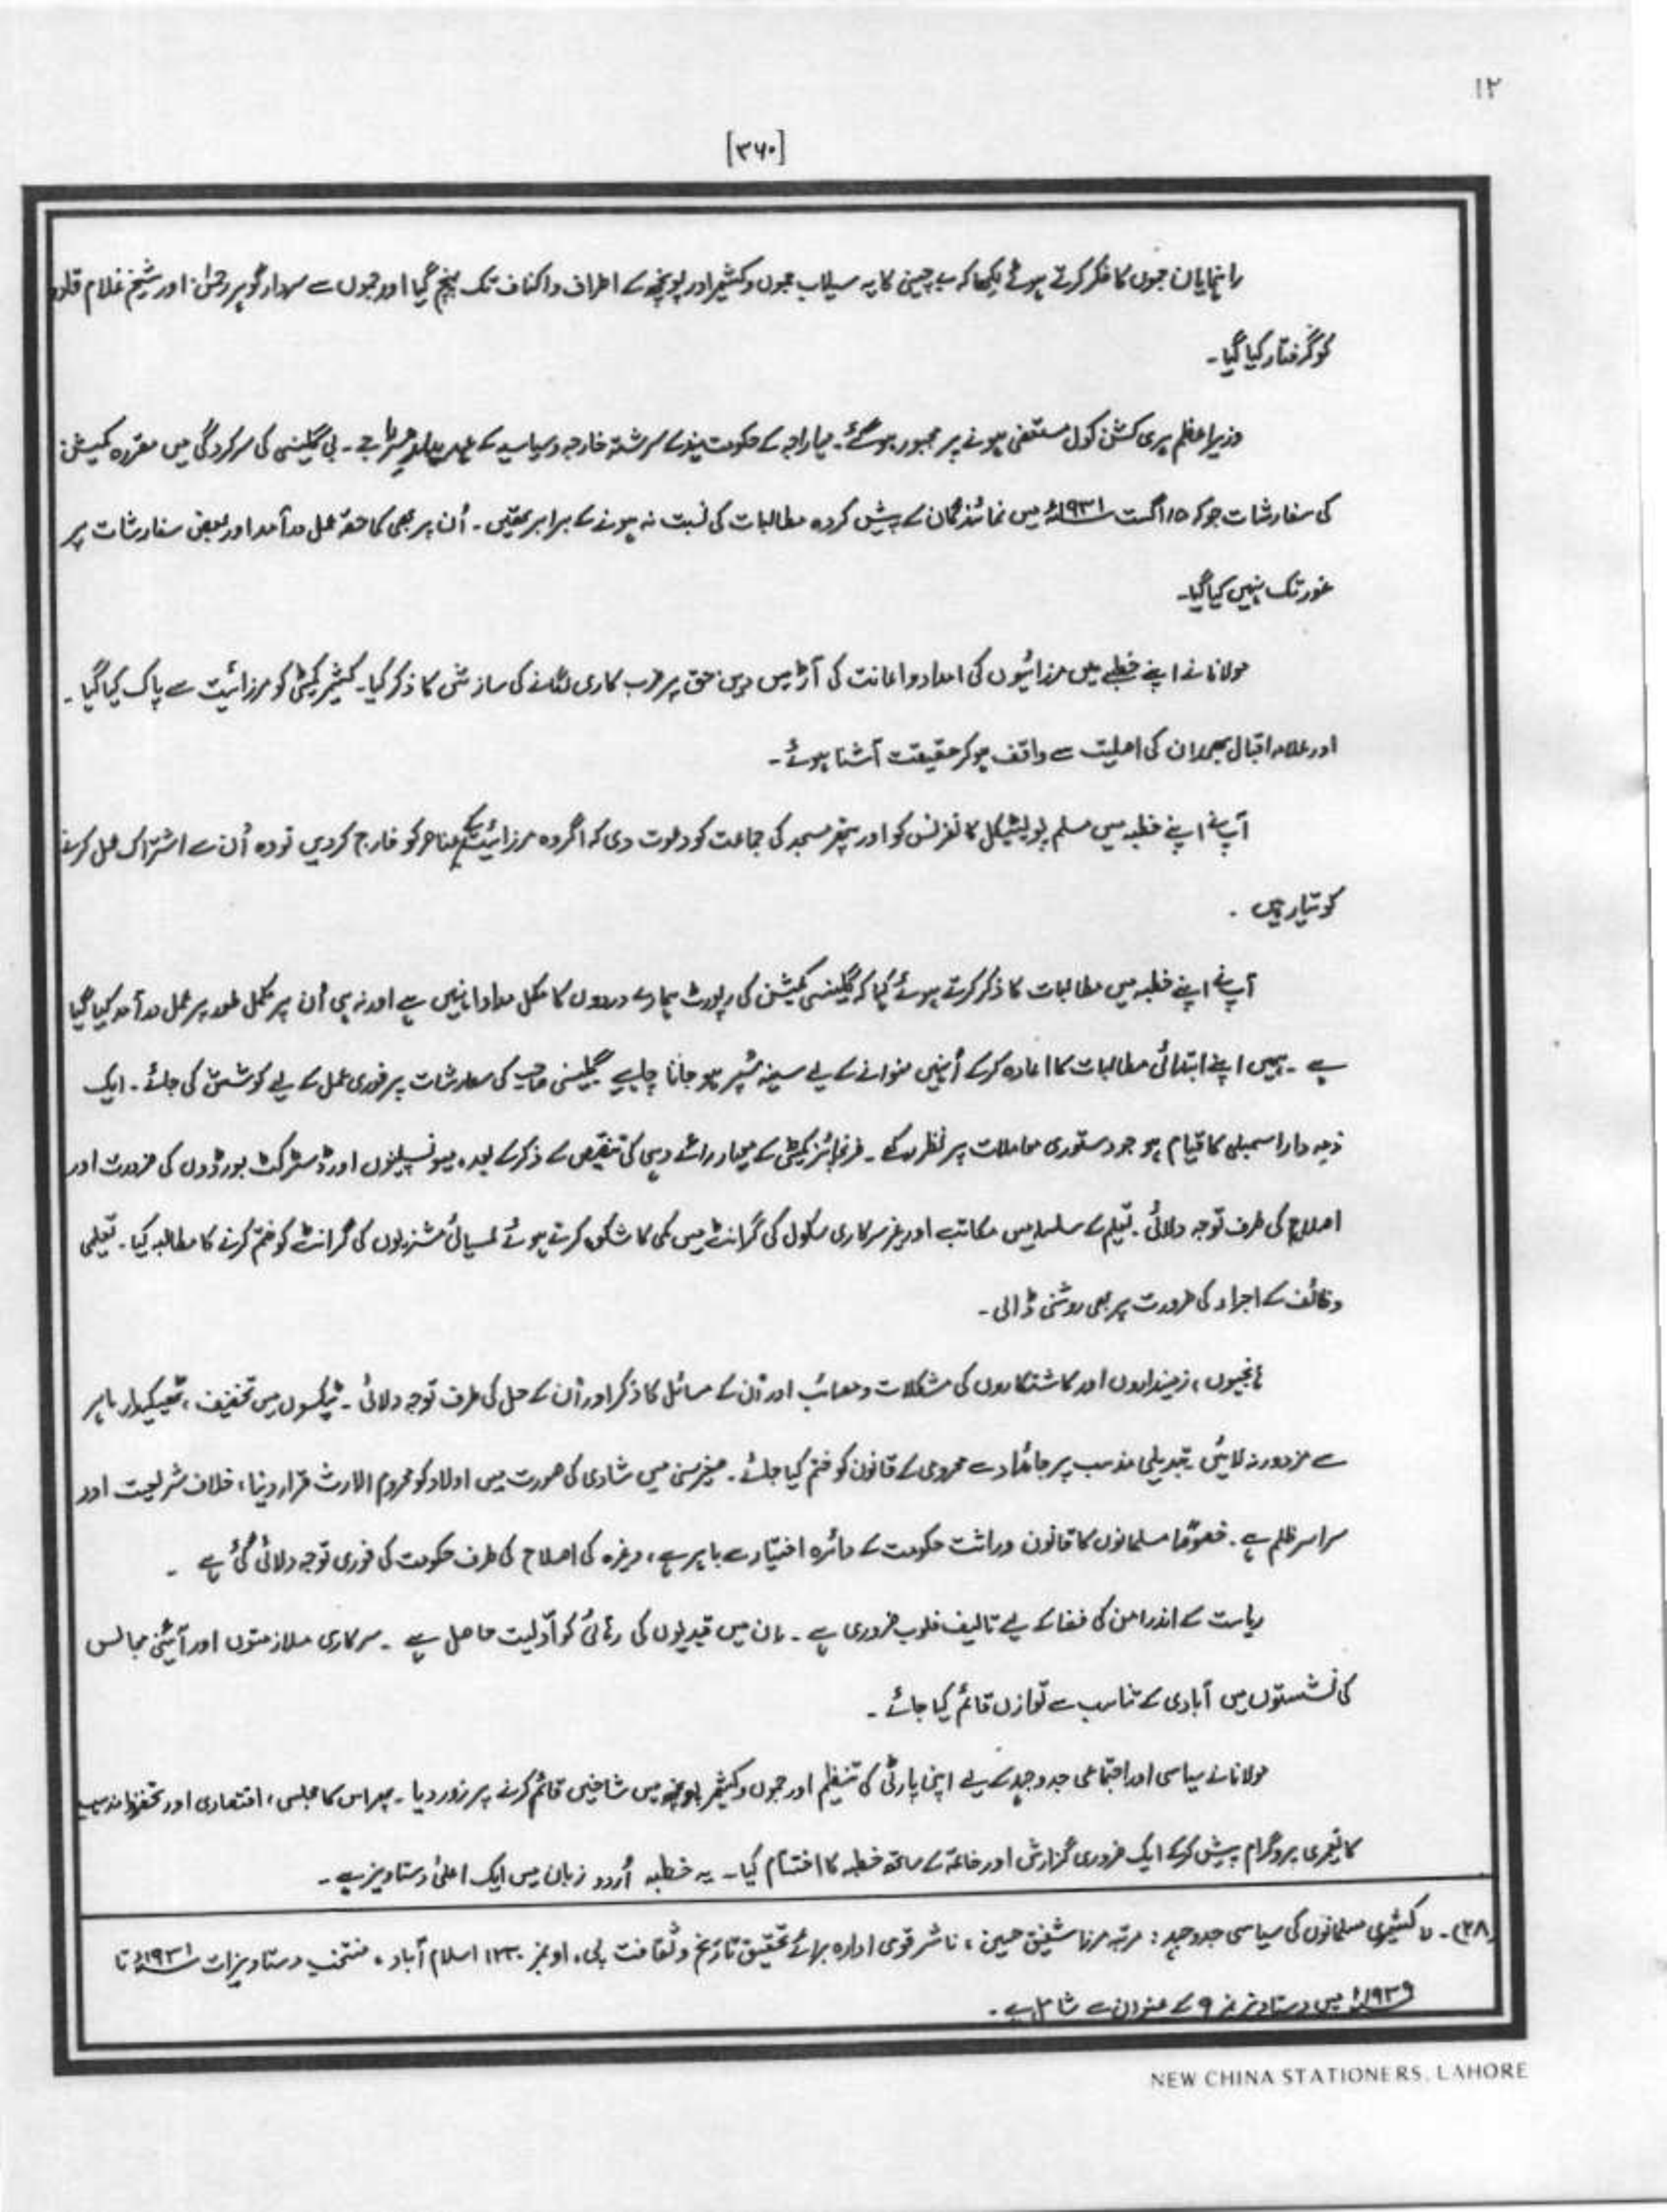 ۱۲
[۳۶۰]
راہنمایان جموں کا ذکر کرتے ہوئے لکھا کہ بے چینی کا یہ سیلاب جموں و کشمیر اور پونچھ کے اطراف و اکناف تک پہنچ گیا اور جموں سے سردار گوہر رحمٰن اور شیخ غلام قادر
کو گرفتار کیا گیا۔
وزیراعظم ہری کشن کول مستعفی ہونے پر مجبور ہو گئے۔ مہاراجہ کے حکومت ہند کے سررشتہ خارجہ و سیاسیہ کے عہدیدار مسٹر بی جے۔ بی گلینسی کی سرکردگی میں مقررہ کمیشن
کی سفارشات جو کہ ۱۵ اگست ۱۹۳۱ء میں نمائندگان کے پیش کردہ مطالبات کی نسبت نہ ہونے کے برابر تھیں۔ اُن پر بھی کماحقہ عمل درآمد اور بعض سفارشات پر
غور تک نہیں کیا گیا۔
مولانا نے اپنے خطبے میں مرزائیوں کی امداد و اعانت کی آڑ میں دین حق پر ضرب کاری لگانے کی سازش کا ذکر کیا۔ کشمیر کمیٹی کو مرزائیت سے پاک کیا گیا۔
اور علامہ اقبال بھی ان کی اصلیت سے واقف ہو کر حقیقت آشنا ہوئے۔
آپ نے اپنے خطبہ میں مسلم پولیٹیکل کانفرنس کو اور پتھر مسجد کی جماعت کو دعوت دی کہ اگر وہ مرزائیت کے عناصر کو خارج کر دیں تو وہ اُن سے اشتراک عمل کرنے
کو تیار ہیں۔
آپ نے اپنے خطبہ میں مطالبات کا ذکر کرتے ہوئے کہا کہ گلینسی کمیشن کی رپورٹ ہمارے دردوں کا مکمل مداوا نہیں ہے اور نہ ہی اُن پر مکمل طور پر عمل درآمد کیا گیا
ہے۔ ہمیں اپنے ابتدائی مطالبات کا اعادہ کر کے اُنہیں منوانے کے لیے سینہ سُپر ہو جانا چاہیے گلینسی صاحب کی سفارشات پر فوری عمل کے لیے کوشش کی جائے۔ ایک
ذمہ دار اسمبلی کا قیام ہو جو دستوری معاملات پر نظر رکھے۔ فرنچائز کمیٹی کے معیار رائے دہی کی تنقیص کے ذکر کے بعد، میونسپلٹیوں اور ڈسٹرکٹ بورڈوں کی ضرورت اور
اصلاح کی طرف توجہ دلائی۔ تعلیم کے سلسلہ میں مکاتب اور غیر سرکاری سکول کی گرانٹ میں کمی کا شکوہ کرتے ہوئے عیسائی مشنریوں کی گرانٹ کو ختم کرنے کا مطالبہ کیا۔ تعلیمی
وظائف کے اجراء کی ضرورت پر بھی روشنی ڈالی۔
ہانجیوں، زمینداروں اور کاشتکاروں کی مشکلات و مصائب اور اُن کے مسائل کا ذکر اور اُن کے حل کی طرف توجہ دلائی۔ ٹیکسوں میں تخفیف، ٹھیکیدار باہر
سے مزدور نہ لائیں۔ تبدیلی مذہب پر جائداد سے محرومی کے قانون کو ختم کیا جائے۔ صغیر سنی میں شادی کی صورت میں اولاد کو محروم الارث قرار دینا، خلاف شریعت اور
سراسر ظلم ہے۔ خصوصًا مسلمانوں کا قانون وراثت حکومت کے دائرہ اختیار سے باہر ہے، وغیرہ کی اصلاح کی طرف حکومت کی فوری توجہ دلائی گئی ہے۔
ریاست کے اندر امن کی فضا کے لیے تالیف قلوب ضروری ہے۔ ان میں قیدیوں کی رہائی کو اوّلیت حاصل ہے۔ سرکاری ملازمتوں اور آئینی مجالس
کی نشستوں میں آبادی کے تناسب سے توازن قائم کیا جائے۔
مولانا نے سیاسی اور اجتماعی جدوجہد کے لیے اپنی پارٹی کی تنظیم اور جموں و کشمیر پونچھ میں شاخیں قائم کرنے پر زور دیا۔ پھر اس کا مجلسی، اقتصادی اور تحفظ مذہب
کا تعمیری پروگرام پیش کر کے ایک ضروری گزارش اور خاتمہ کے ساتھ خطبہ کا اختتام کیا۔ یہ خطبہ اُردو زبان میں ایک اعلیٰ دستاویز ہے۔
(۲۸)۔ کشمیری مسلمانوں کی سیاسی جدوجہد: مرتبہ مرزا شفیق حسین، ناشر قومی ادارہ برائے تحقیق تاریخ و ثقافت پی، او بکس ۱۲۳۰ اسلام آباد، منتخب دستاویزات ۱۹۳۱ء تا
۱۹۳۹ء میں دستاویز نمبر ۹ کے عنوان سے شامل ہے۔
NEW CHINA STATIONERS, LAHORE